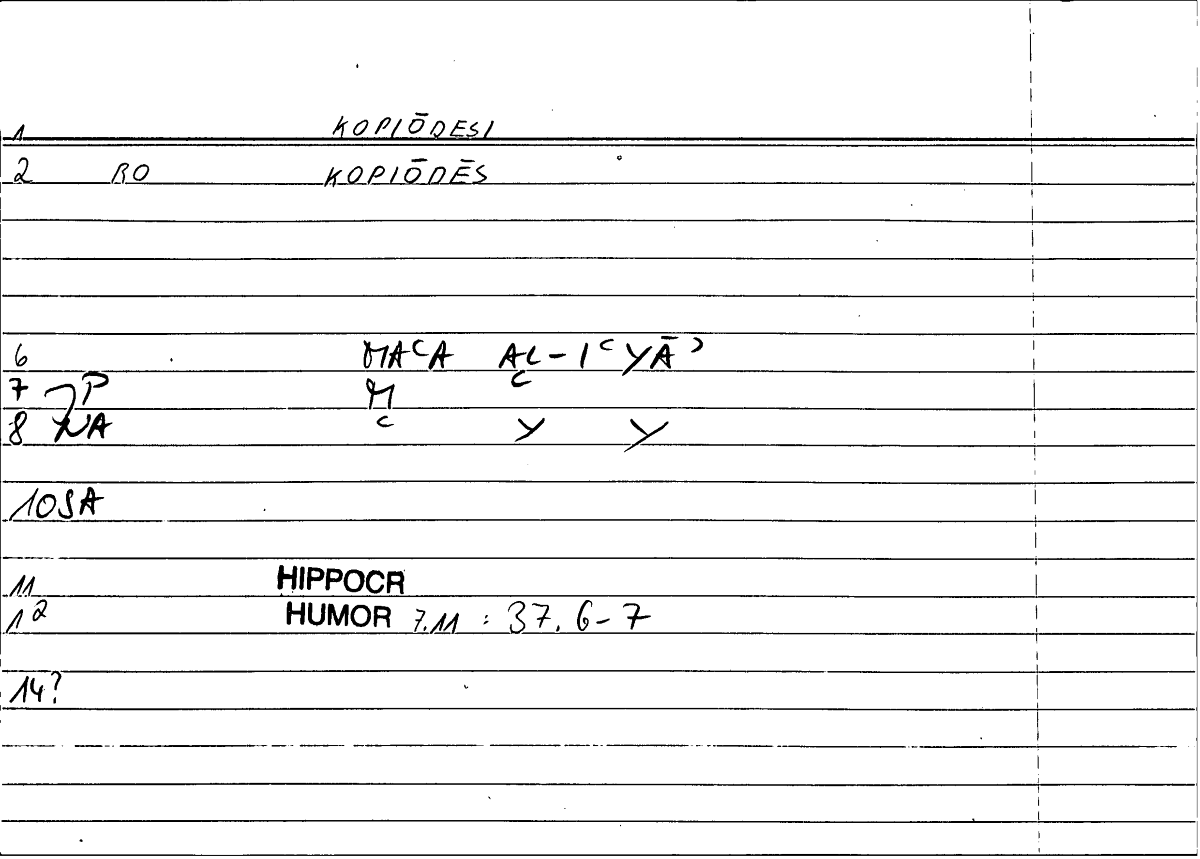 1 KOPIŌDESI
2 RO KOPIŌDĒS
6 MAʿA AL-IʿYĀʾ
7 P M ʿ
8 NA ʿ Y Y
10 SA
11 HIPPOCR
12 HUMOR 7.11 : 37.6-7
14?